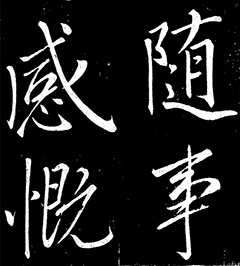 随事
感慨